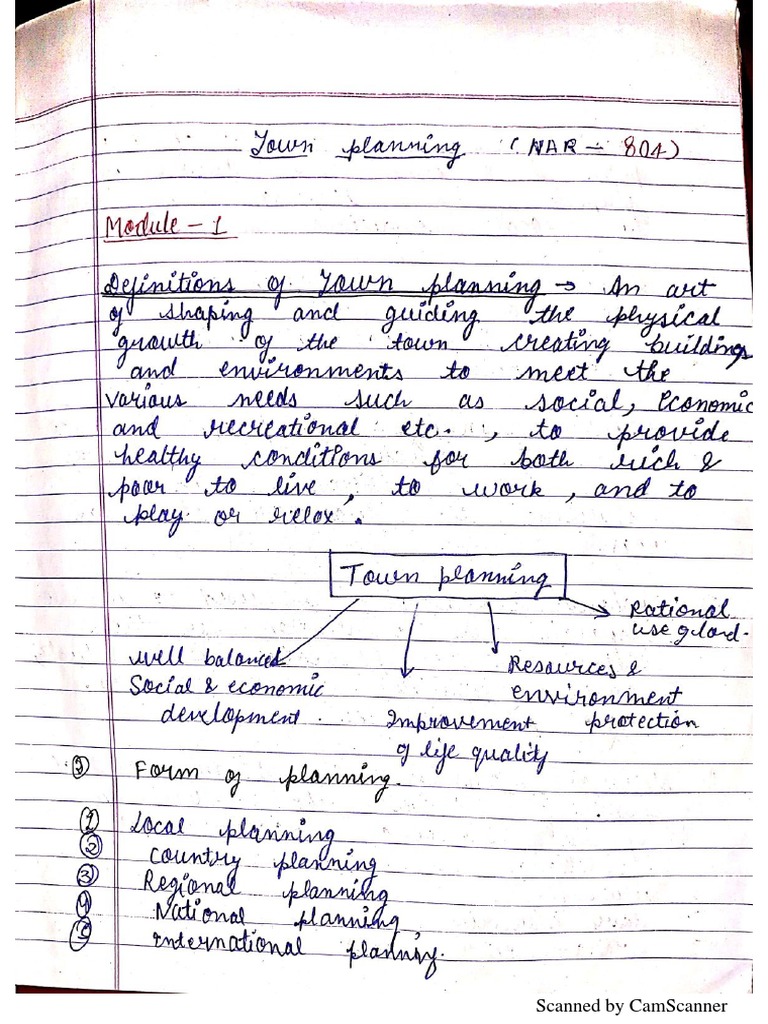 Town planning (NAR - 804)
Module - 1
Definitions of Town planning → An art
of shaping and guiding the physical
growth of the town creating buildings
and environments to meet the
various needs such as social, economic
and recreational etc. , to provide
healthy conditions for both rich &
poor to live , to work , and to
play or relax .
Town planning
Rational
use of land.
well balanced
Social & economic
development .
Improvement
of life quality
Resources &
environment
protection
Form of planning.
① Local planning
② country planning
③ Regional planning
④ National planning
⑤ International planning.
Scanned by CamScanner